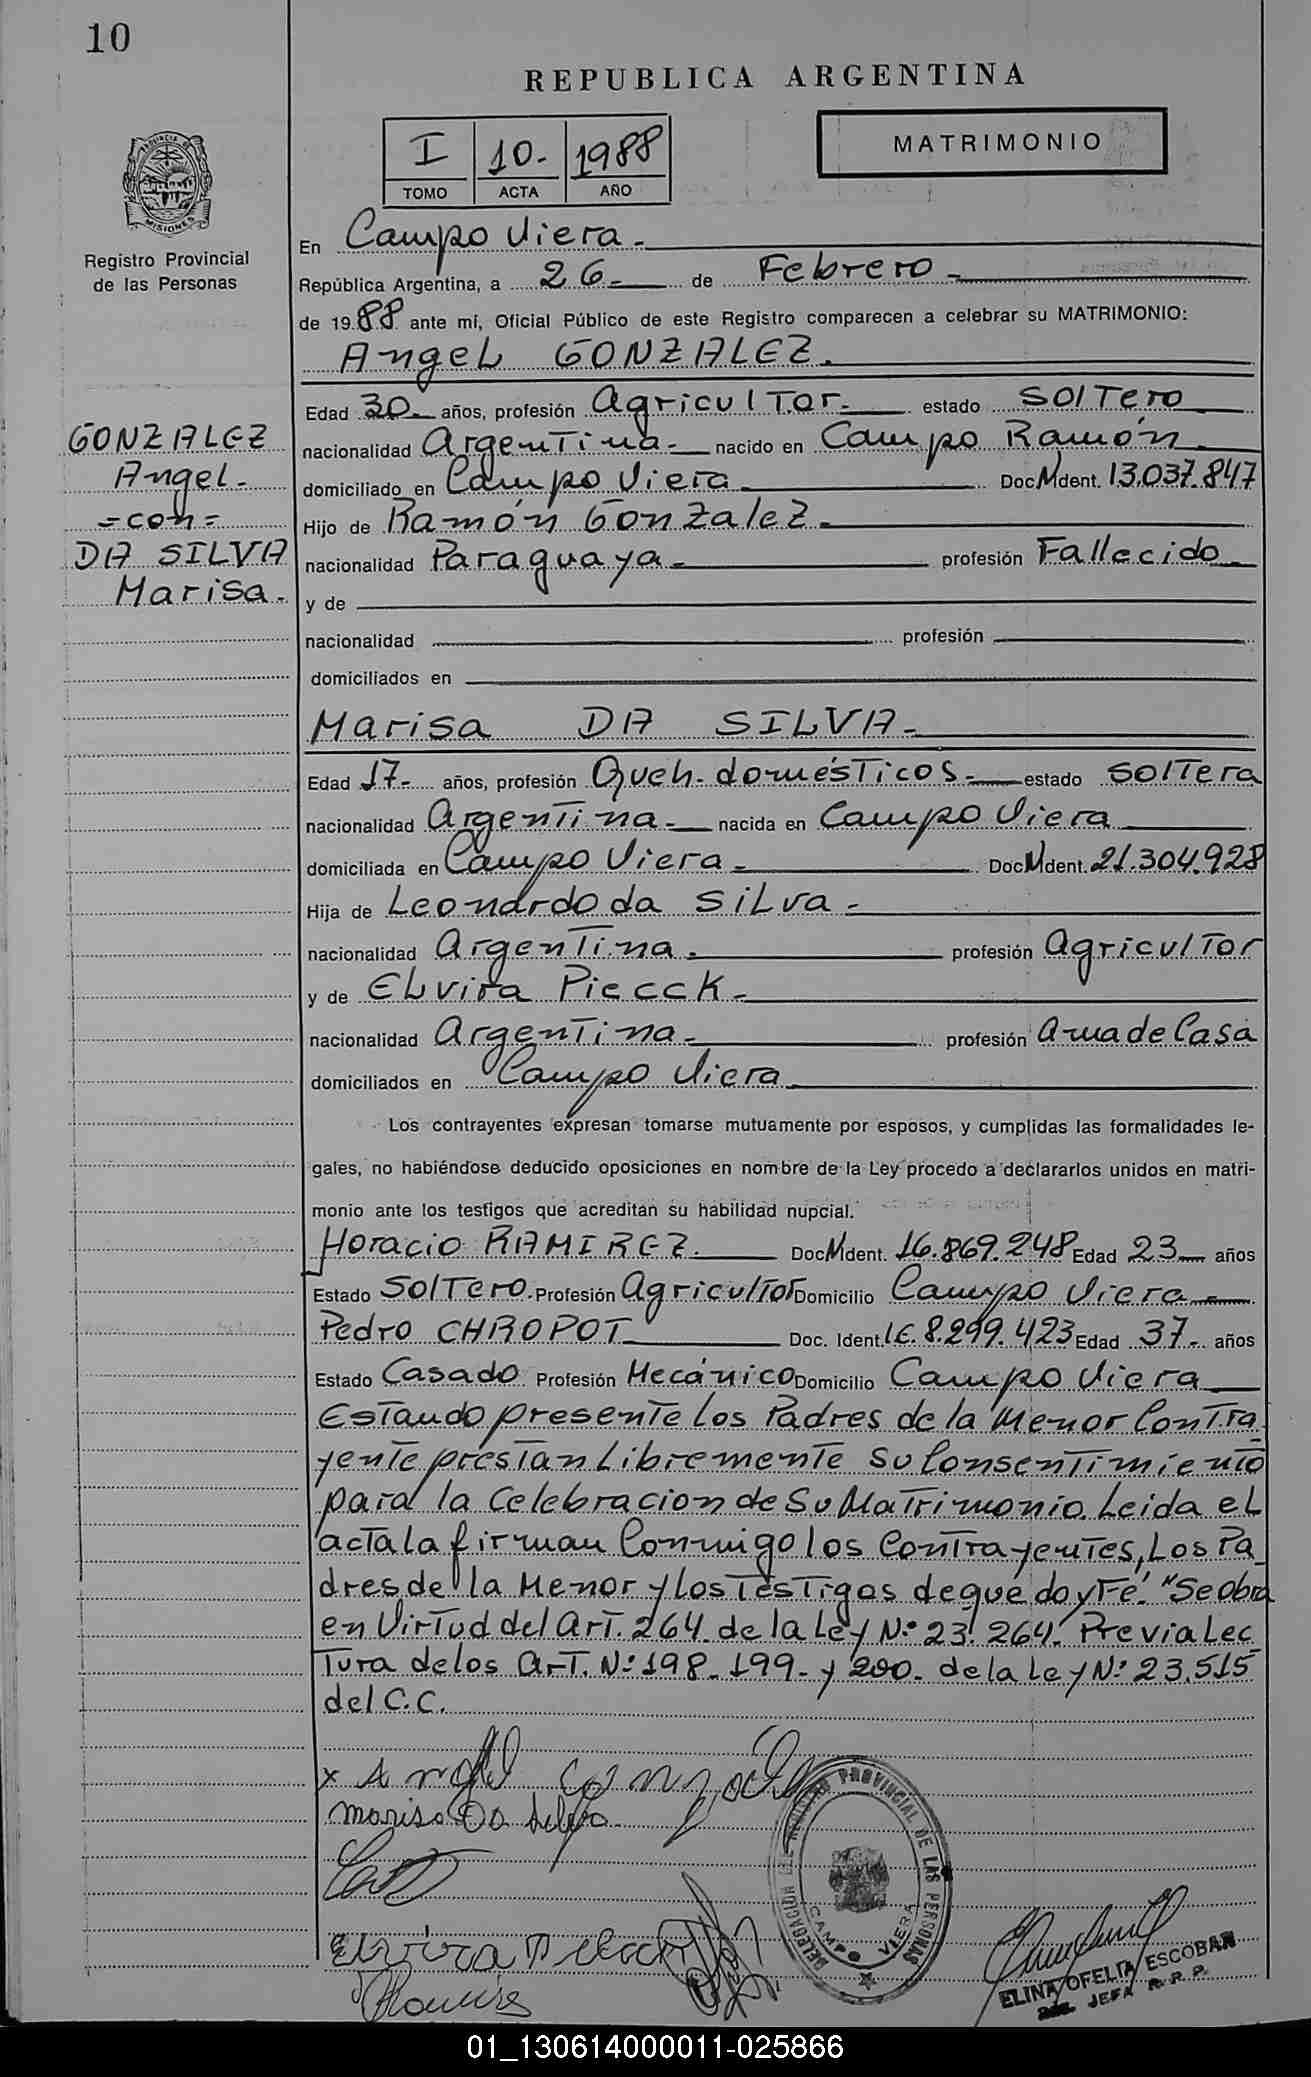 10
REPUBLICA ARGENTINA
I 10.- 1988
TOMO ACTA AÑO
MATRIMONIO
PROVINCIA DE
MISIONES
Registro Provincial
de las Personas
GONZALEZ
Angel.-
=con=
DA SILVA
Marisa.-
En Campo Viera.-
República Argentina, a 26.- de Febrero.-
de 1988 ante mí, Oficial Público de este Registro comparecen a celebrar su MATRIMONIO:
Angel GONZALEZ.
Edad 30.- años, profesión Agricultor.- estado Soltero
nacionalidad Argentina.- nacido en Campo Ramón.
domiciliado en Campo Viera Doc. Ident. 13.037.847
Hijo de Ramón Gonzalez.
nacionalidad Paraguaya.- profesión Fallecido.
y de
nacionalidad profesión
domiciliados en
Marisa DA SILVA.-
Edad 17.- años, profesión Queh. domésticos.- estado Soltera
nacionalidad Argentina.- nacida en Campo Viera
domiciliada en Campo Viera.- Doc. Ident. 21.304.928
Hija de Leonardo da Silva.-
nacionalidad Argentina. profesión Agricultor
y de Elvira Piecck.-
nacionalidad Argentina.- profesión Ama de Casa
domiciliados en Campo Viera.
Los contrayentes expresan tomarse mutuamente por esposos, y cumplidas las formalidades le-
gales, no habiéndose deducido oposiciones en nombre de la Ley procedo a declararlos unidos en matri-
monio ante los testigos que acreditan su habilidad nupcial.
Horacio RAMIREZ. Doc. Ident. 16.869.248 Edad 23 años
Estado Soltero. Profesión Agricultor Domicilio Campo Viera.-
Pedro CHROPOT Doc. Ident. 8.299.423 Edad 37.- años
Estado Casado Profesión Mecánico Domicilio Campo Viera
Estando presente los Padres de la Menor Contra
yente prestan Libremente su Consentimiento
para la Celebracion de Su Matrimonio. Leida el
acta la firman Conmigo los Contrayentes, Los Pa
dres de la Menor y los Testigos de que doy Fé. "Se obra
en Virtud del Art. 264. de la Ley N° 23.264. Previa Lec
tura de los Art. N° 198.- 199.- y 200.- de la Ley N° 23.515
del C.C.
x Angel Gonzalez
marisa Da Silva
Elvira
Ramirez
DELEGACION DEL REGISTRO PROVINCIAL DE LAS PERSONAS
CAMPO VIERA
ELINA OFELIA ESCOBAR
JEFA R.P.P.
01_130614000011-025866